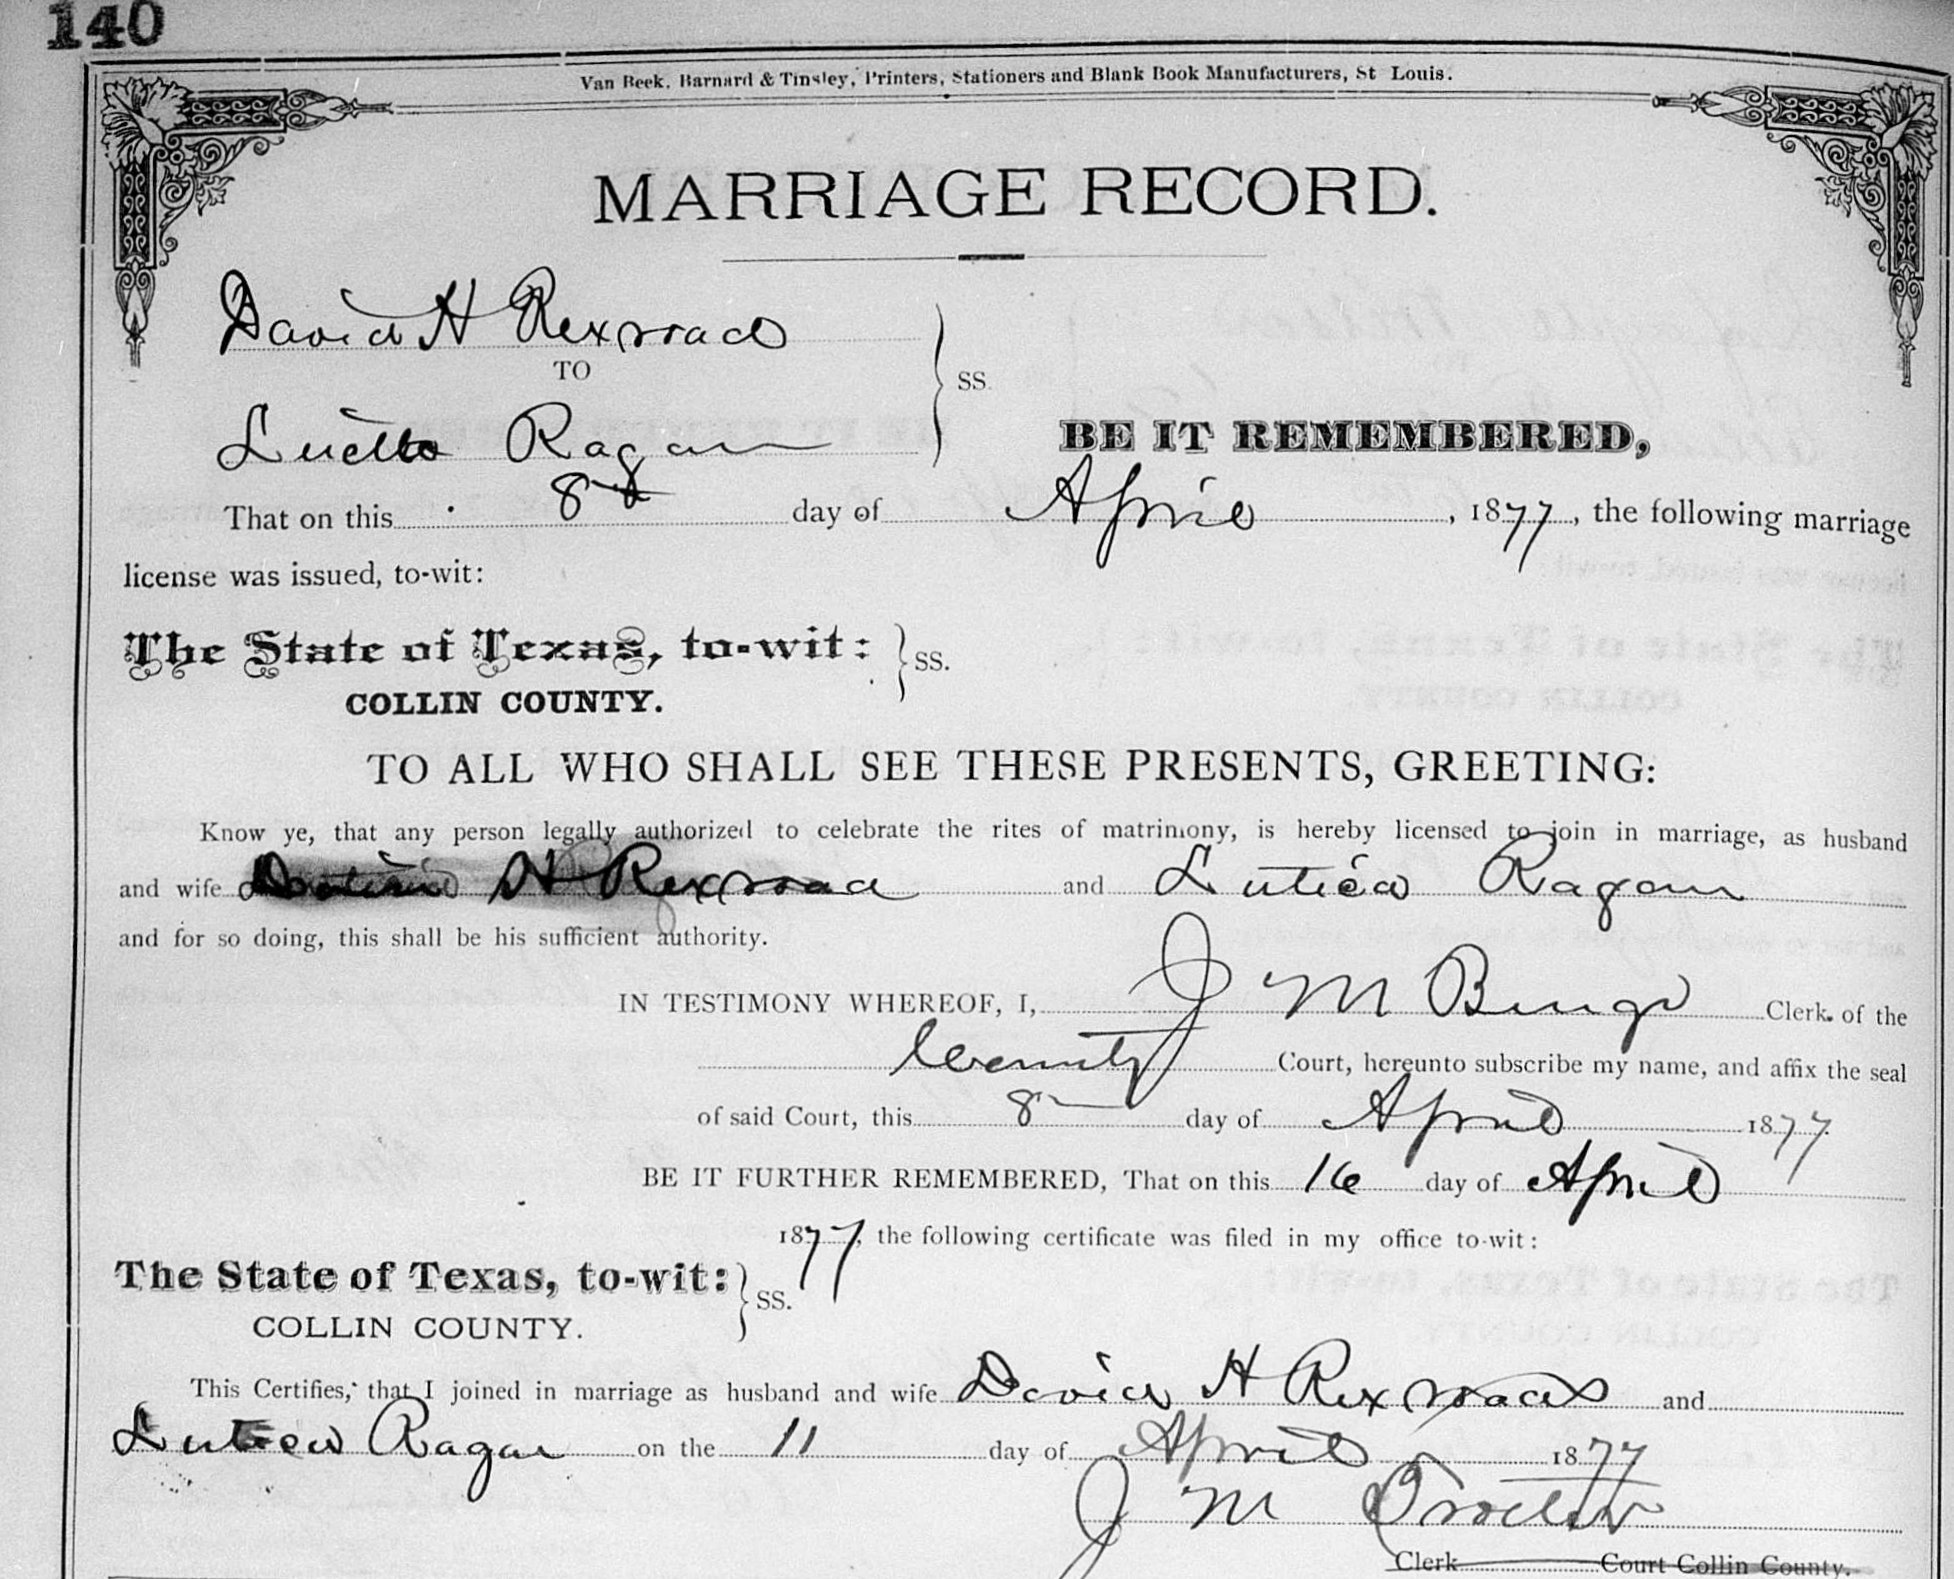 140
Van Beek, Barnard & Tinsley, Printers, Stationers and Blank Book Manufacturers, St Louis.
MARRIAGE RECORD.
David H Rexroad
TO
SS
Ragan
BE IT REMEMBERED,
That on this 8 day of April, 1877, the following marriage
license was issued, to-wit:
The State of Texas, to-wit: SS.
COLLIN COUNTY.
TO ALL WHO SHALL SEE THESE PRESENTS, GREETING:
Know ye, that any person legally authorized to celebrate the rites of matrimony, is hereby licensed to join in marriage, as husband
and wife H Rexroad and Luticia Ragan
and for so doing, this shall be his sufficient authority.
IN TESTIMONY WHEREOF, I, J M Benge Clerk of the
County Court, hereunto subscribe my name, and affix the seal
of said Court, this 8 day of April 1877
BE IT FURTHER REMEMBERED, That on this 16 day of April
1877, the following certificate was filed in my office to-wit:
The State of Texas, to-wit: SS.
COLLIN COUNTY.
This Certifies, that I joined in marriage as husband and wife David H Rexroad and
Ragan on the 11 day of April 1877
J M
Clerk Court Collin County.